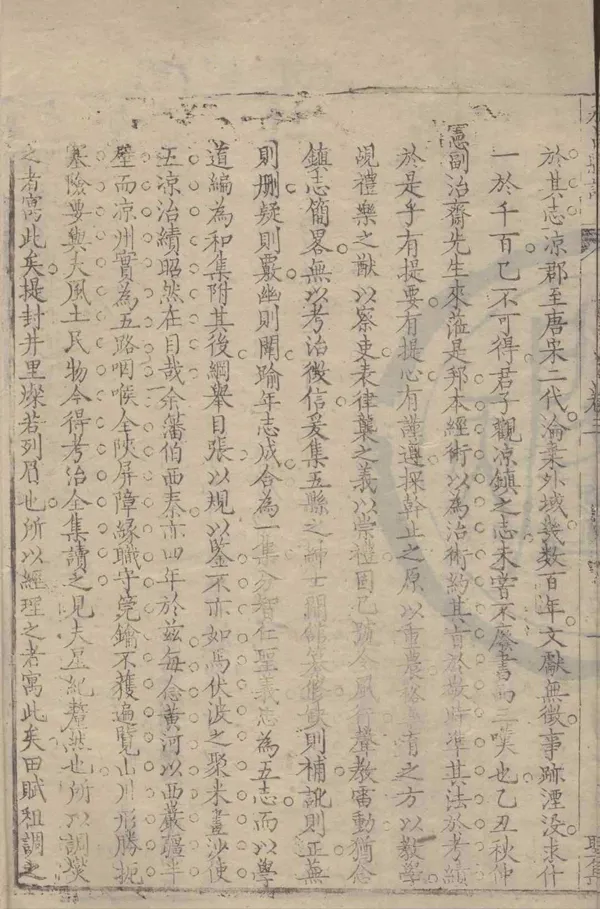 於其志涼郡至唐宋二代淪棄外域幾數百年文獻無徵事跡湮没求什
一於千百已不可得君子觀涼鎮之志未嘗不廢書而三嘆也乙丑秋仲
憲副治齋先生來蒞是邦本經術以為治術約其旨於敬時準其法於考績
於是乎有提要有提心有謹遵探幹止之原以重農務有之方以教學
覘禮樂之猷以察吏表律襲之義以崇禮固已號令風行聲教雷動猶念
鎮志簡畧無以考治徵信爰集五縣之紳士開館纂修缺則補訛則正蕪
則刪疑則覈幽則闡踰年志成合為一集分智仁聖義忠為五志而以學
道編為和集附其後綱舉目張以規以鑒不亦如馬伏波之聚米畫沙使
五涼治績昭然在目哉余藩伯西秦亦四年於茲每念黄河以西嚴疆半
壁而涼州實為五路咽喉全陜屏障緣職守筦鑰不獲遍覽山川形勝扼
塞險要與夫風土民物今得考治全集讀之見夫星紀犛然也所以調燮
之者寓此矣提封井里燦若列眉也所以經理之者寓此矣田賦租調之